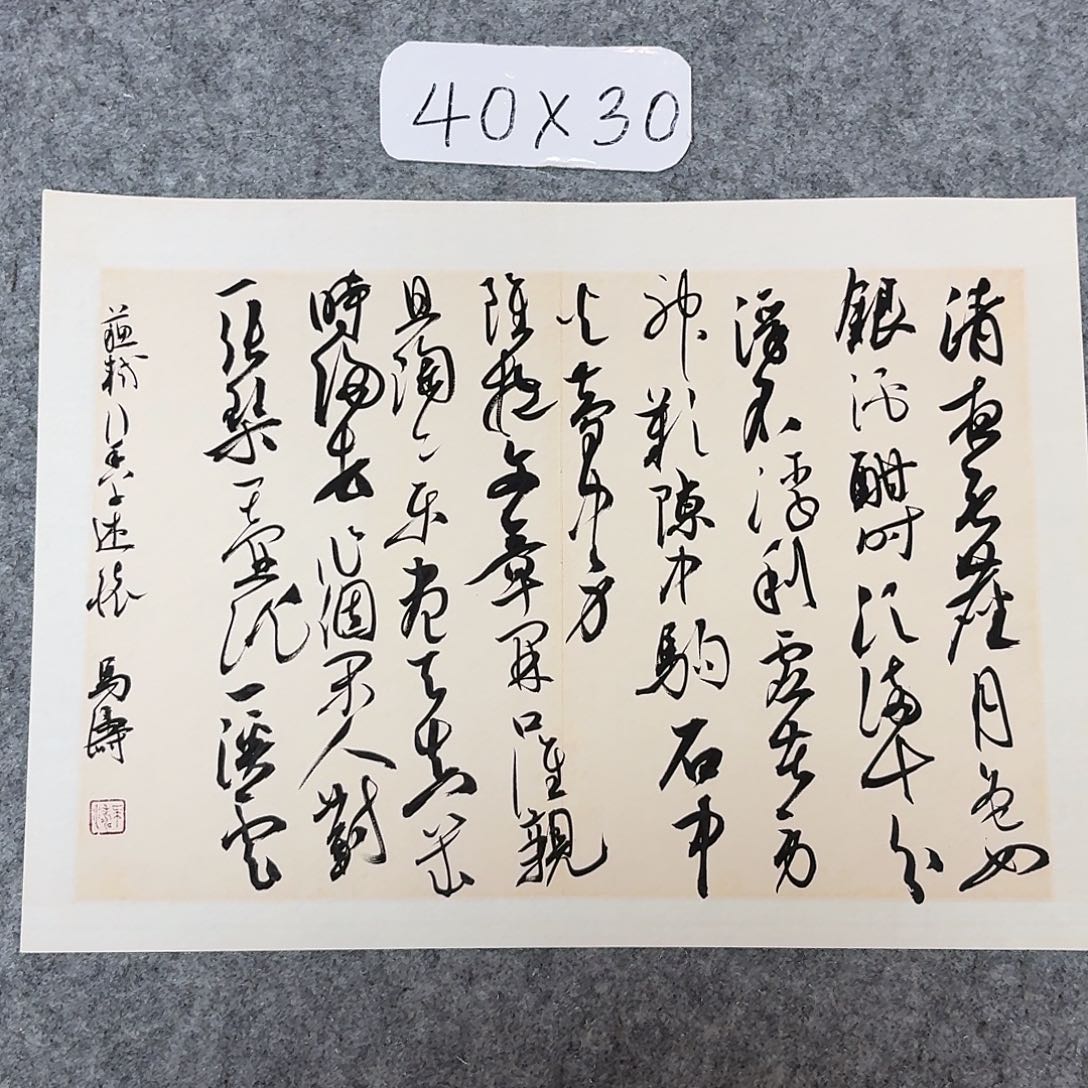 40X30
清夜无塵月色如
銀酒酣时須滿十分
浮名浮利虛苦勞
神歎隙中駒石中
火夢中身
雖抱文章開口誰親
且陶陶樂盡天真幾
時歸去作個閑人對
一張琴一壺酒一溪雲
蘇軾行香子述懷 馬濤